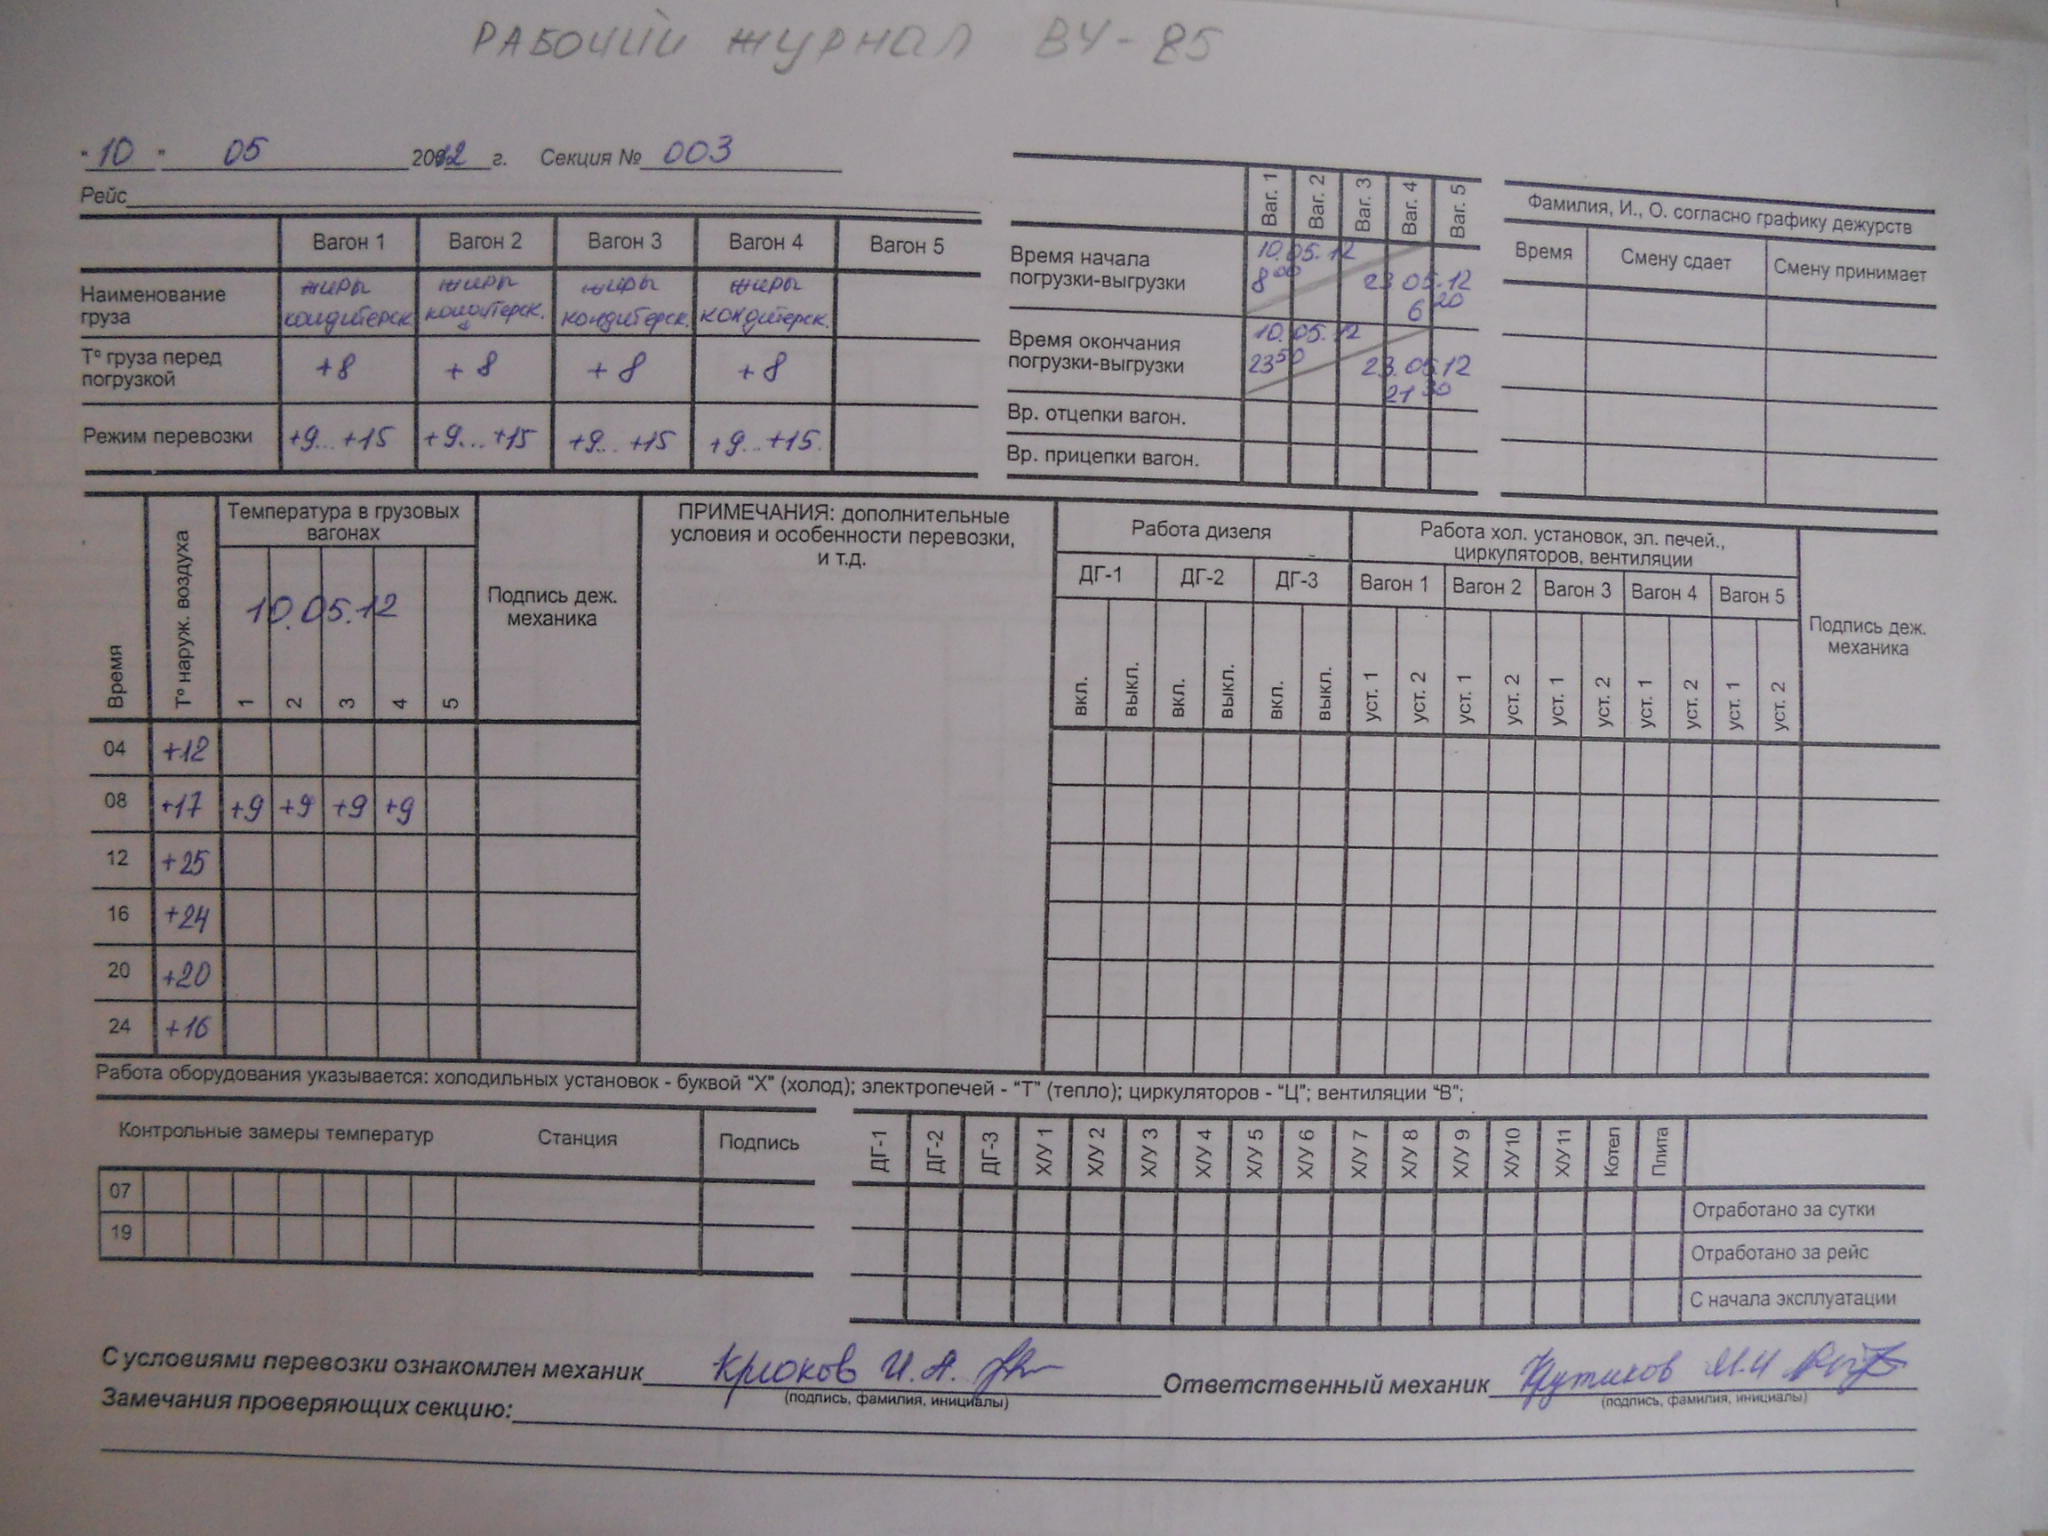 РАБОЧИЙ ЖУРНАЛ ВУ-85
"10" 05 2012 г. Секция № 003
Рейс
Вагон 1 Вагон 2 Вагон 3 Вагон 4 Вагон 5
Наименование груза жиры кондитерск. жиры кондитерск. жиры кондитерск. жиры кондитерск.
Т° груза перед погрузкой +8 +8 +8 +8
Режим перевозки +9...+15 +9...+15 +9...+15 +9...+15
Ваг. 1 Ваг. 2 Ваг. 3 Ваг. 4 Ваг. 5
Время начала погрузки-выгрузки 10.05.12 8⁰⁰ 23.05.12 6²⁰
Время окончания погрузки-выгрузки 10.05.12 23⁵⁰ 23.05.12 21³⁰
Вр. отцепки вагон.
Вр. прицепки вагон.
Фамилия, И., О. согласно графику дежурств
Время Смену сдает Смену принимает
Время Т° наруж. воздуха
Температура в грузовых вагонах
10.05.12
1 2 3 4 5
Подпись деж. механика
ПРИМЕЧАНИЯ: дополнительные
условия и особенности перевозки,
и т.д.
Работа дизеля
ДГ-1 ДГ-2 ДГ-3
вкл. выкл. вкл. выкл. вкл. выкл.
Работа хол. установок, эл. печей.,
циркуляторов, вентиляции
Вагон 1 Вагон 2 Вагон 3 Вагон 4 Вагон 5
уст. 1 уст. 2 уст. 1 уст. 2 уст. 1 уст. 2 уст. 1 уст. 2 уст. 1 уст. 2
Подпись деж. механика
04 +12
08 +17 +9 +9 +9 +9
12 +25
16 +24
20 +20
24 +16
Работа оборудования указывается: холодильных установок - буквой "Х" (холод); электропечей - "Т" (тепло); циркуляторов - "Ц"; вентиляции "В";
Контрольные замеры температур Станция Подпись
07
19
ДГ-1 ДГ-2 ДГ-3 Х/У 1 Х/У 2 Х/У 3 Х/У 4 Х/У 5 Х/У 6 Х/У 7 Х/У 8 Х/У 9 Х/У 10 Х/У 11 Котел Плита
Отработано за сутки
Отработано за рейс
С начала эксплуатации
С условиями перевозки ознакомлен механик Крюков И. А. Ответственный механик Крутиков М.И
(подпись, фамилия, инициалы) (подпись, фамилия, инициалы)
Замечания проверяющих секцию: